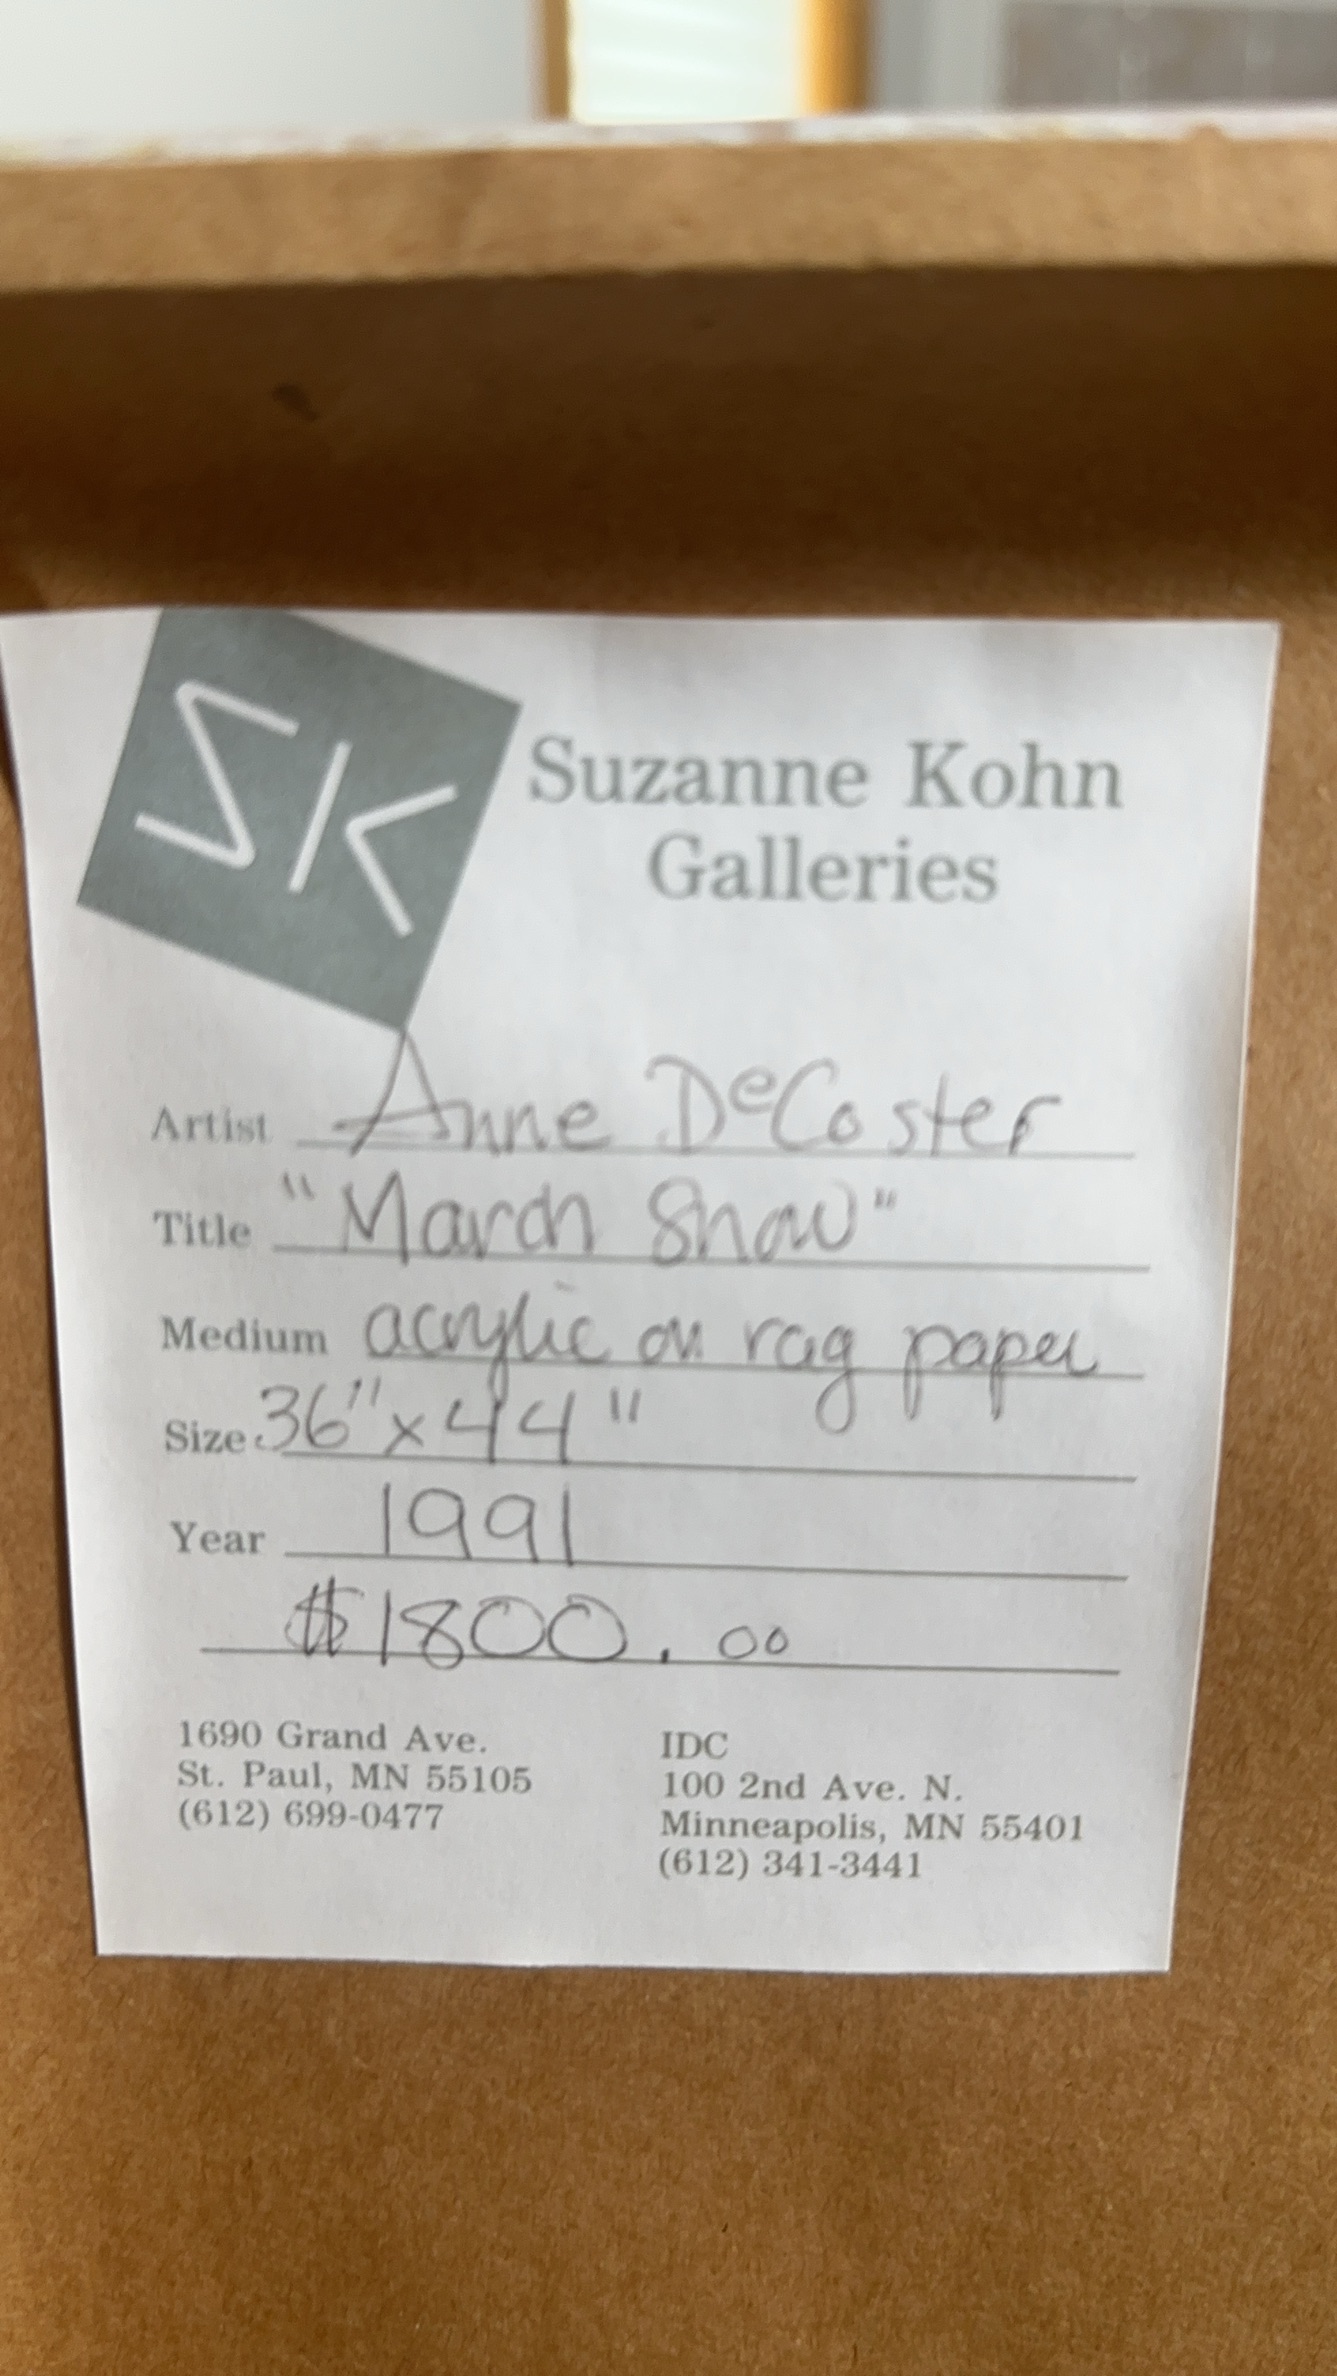 SK
Suzanne Kohn
Galleries
Artist Anne DeCoster
Title "March Snow"
Medium acrylic on rag paper
Size 36" x 44"
Year 1991
$1800.00
1690 Grand Ave.
St. Paul, MN 55105
(612) 699-0477
IDC
100 2nd Ave. N.
Minneapolis, MN 55401
(612) 341-3441